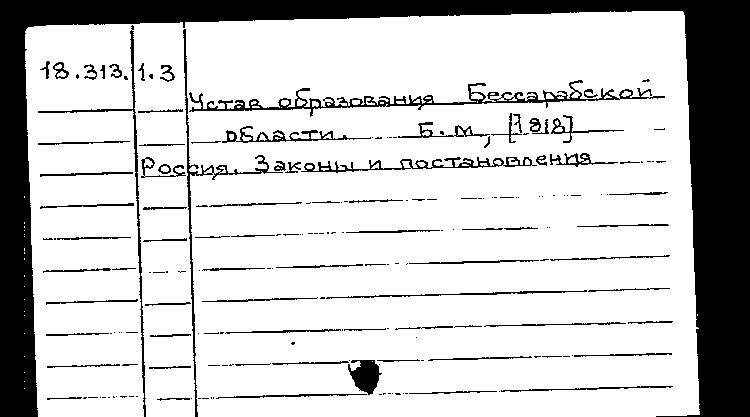 18.313.1.3
Устав образования Бессарабской
области. Б.м., [1818]
Россия. Законы и постановления